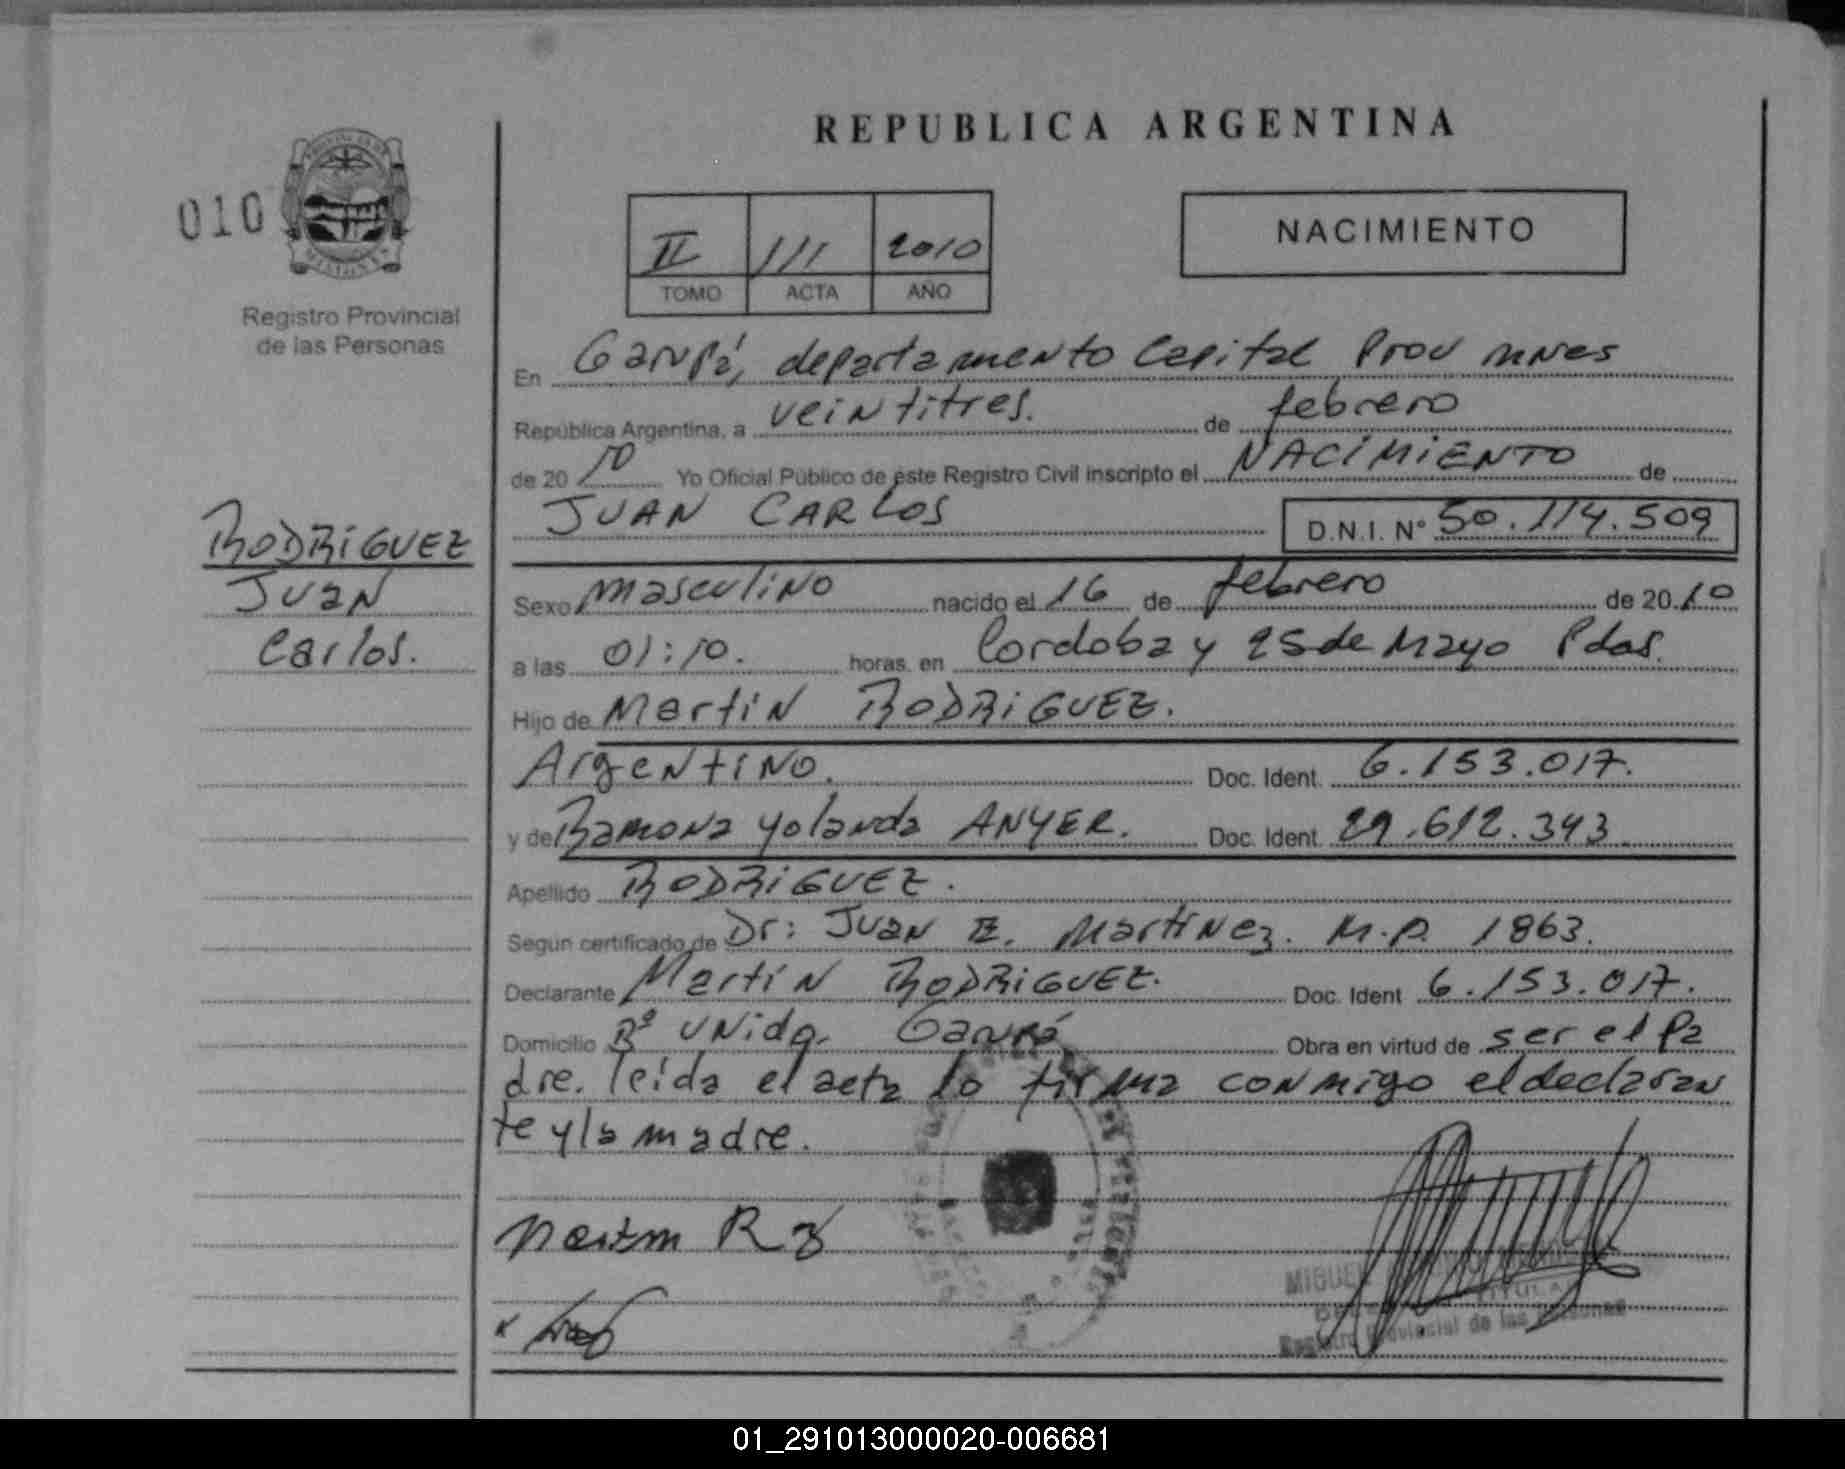 REPUBLICA ARGENTINA
010
PROVINCIA DE
MISIONES
Registro Provincial
de las Personas
II 111 2010
TOMO ACTA AÑO
NACIMIENTO
En Garupá, departamento Capital Prov mnes
República Argentina, a veintitres. de febrero
de 2010 Yo Oficial Público de este Registro Civil inscripto el NACIMIENTO de
JUAN CARLOS D.N.I. Nº 50.114.509
RODRIGUEZ
Juan
Carlos.
Sexo masculino nacido el 16 de febrero de 2010
a las 01:10. horas, en Cordoba y 25 de Mayo Pdas.
Hijo de Martin RODRIGUEZ.
Argentino. Doc. Ident. 6.153.017.
y de Ramona Yolanda ANYER. Doc. Ident. 29.612.343
Apellido RODRIGUEZ.
Según certificado de Dr: Juan E. Martinez. M.P. 1863.
Declarante Martin RODRIGUEZ. Doc. Ident 6.153.017.
Domicilio Bº Unida. Garupá Obra en virtud de ser el Pa
dre. leida el acta lo firma conmigo el declaran
te y la madre.
Martin R
MIGUEL
TITULAR
Registro Provincial de las Personas
01_291013000020-006681